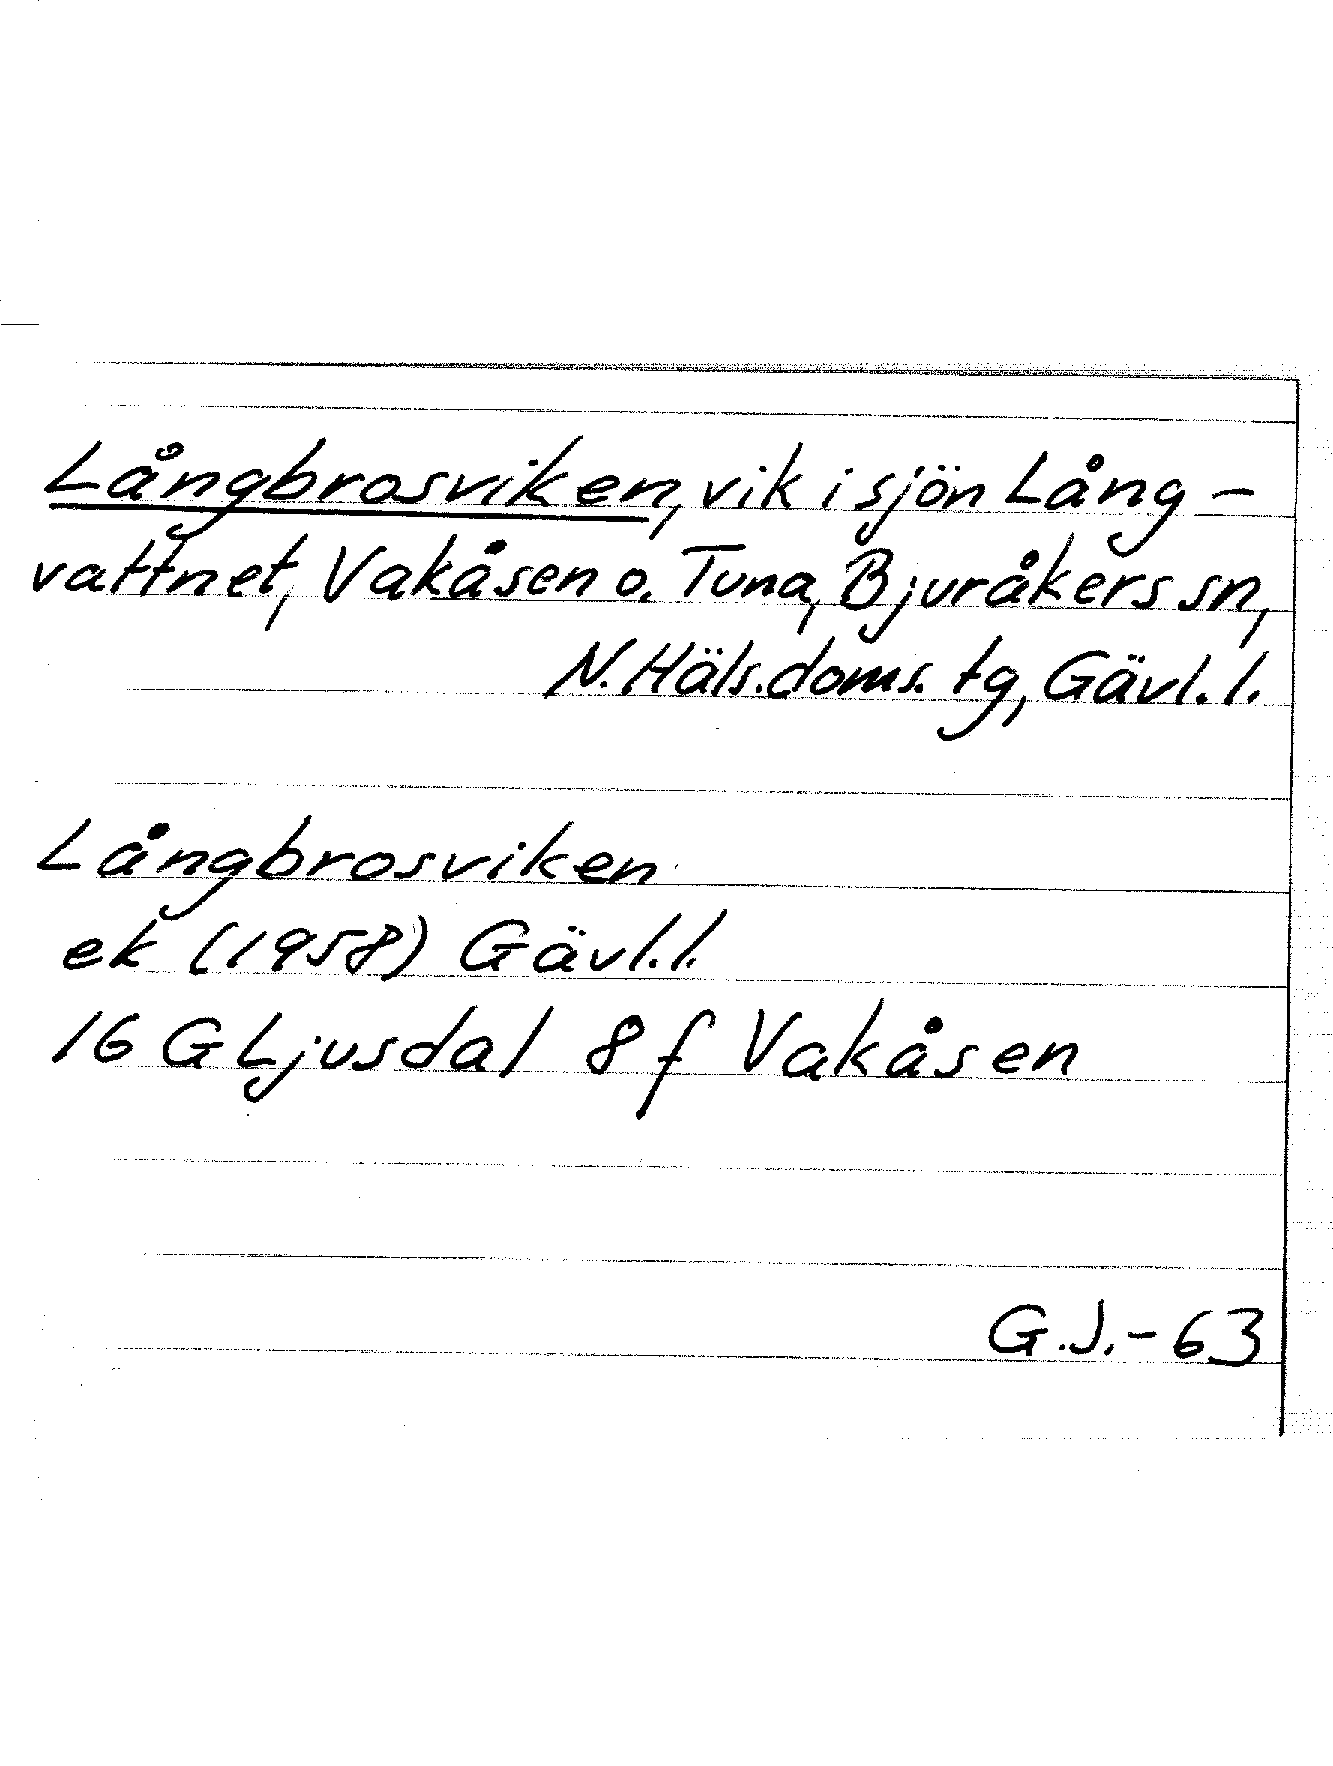 Långbrosviken, vik i sjön Lång-
vattnet, Vakåsen o. Tuna, Bjuråkers sn,
N. Häls. doms. tg, Gävl. l.
Långbrosviken
ek (1958) Gävl. l.
16 G Ljusdal 8 f Vakåsen
G.J.-63